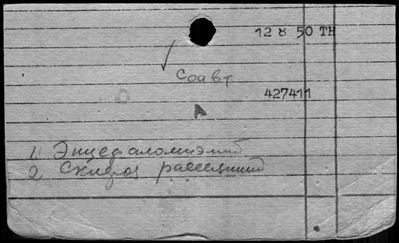 12 8 50 TH
Соавт
427411
А
1. Энцефаломиэлит
2. Склероз рассеянный